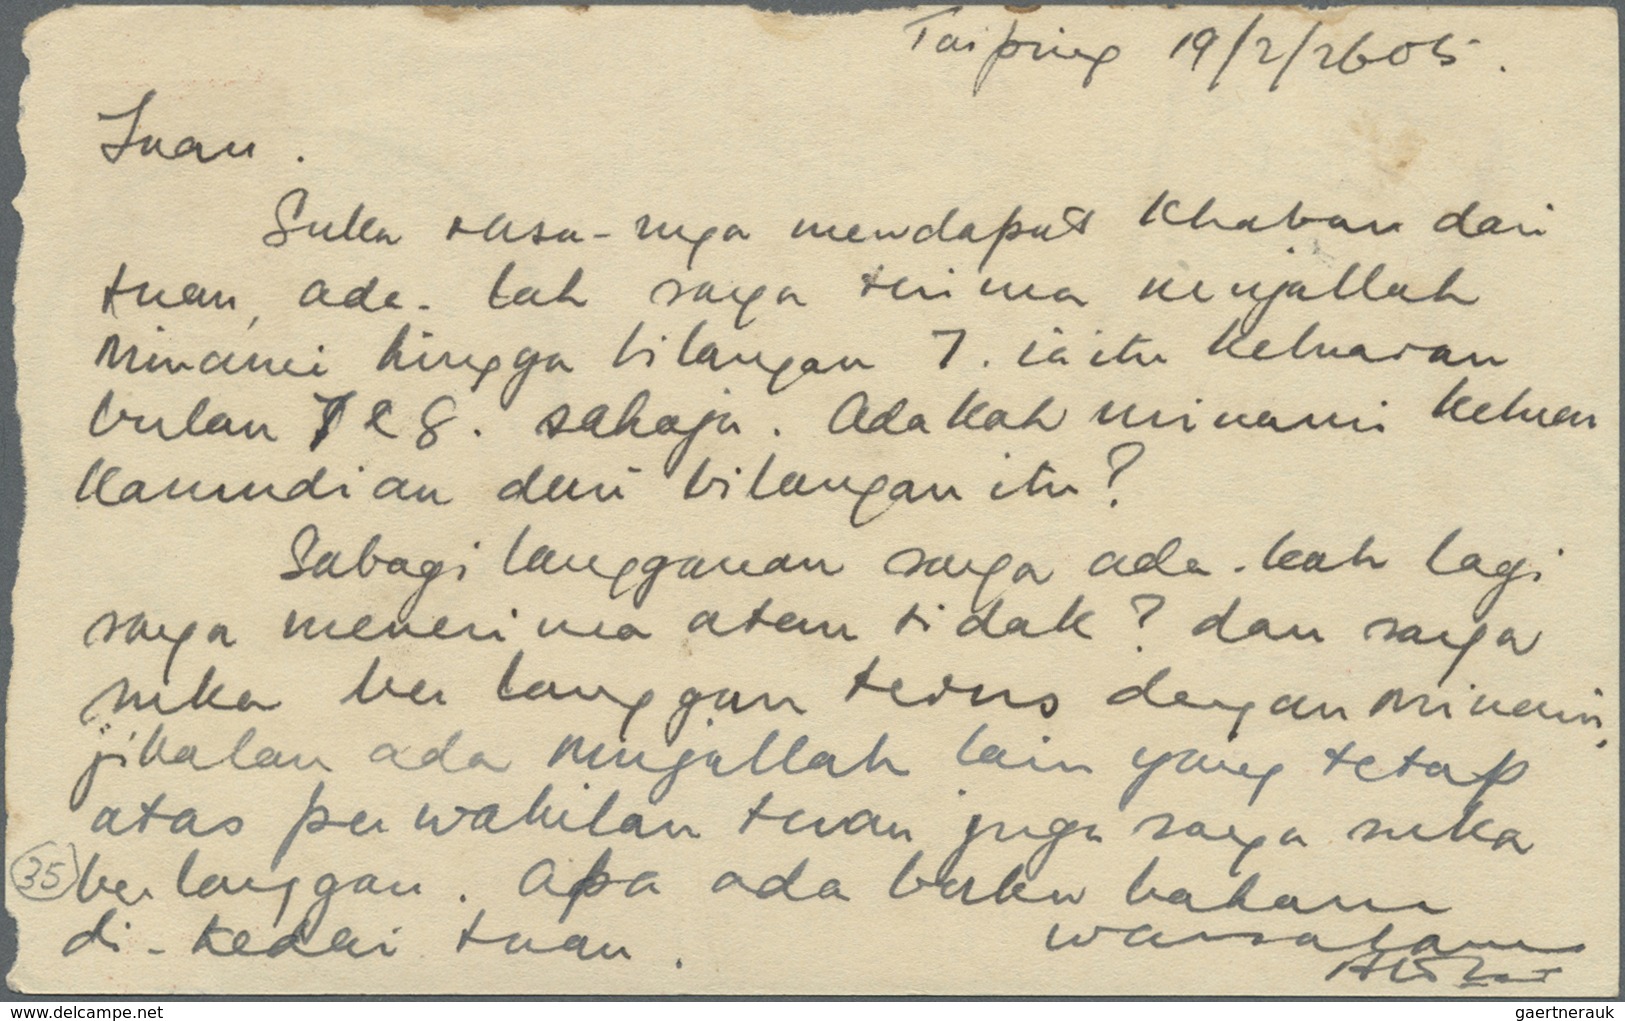 Taiping 19/2/2605.
Tuan.
Suka rasa-nya mendapat khabar dari
tuan, ada-lah saya terima mujallah
Minami hingga bilangan 7. iaitu keluaran
bulan 7 & 8. sahaja. Adakah minami keluar
kamudian dari bilangan itu?
Sabagi langganan saya ada-kah lagi
saya menerima atau tidak? dan saya
suka ber langgan terus dengan Minami,
jikalau ada mujallah lain yang tetap
atas perwakilan tuan juga saya suka
35 ber langgan. Apa ada buku baharu
di-kedai tuan.
wassalam
delcampe.net
gaertnerauk